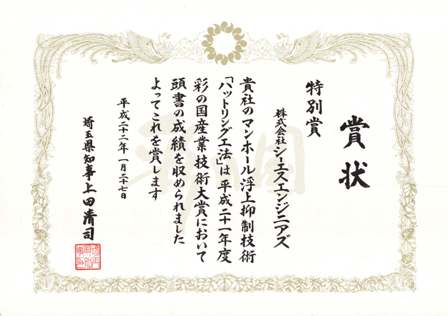 賞状
特別賞
株式会社 シーエスエンジニアズ
貴社のマンホール浮上抑制技術
「ハットリング工法」は平成二十一年度
彩の国産業技術大賞において
頭書の成績を収められました
よってこれを賞します
平成二十二年一月二十七日
埼玉県知事 上田清司